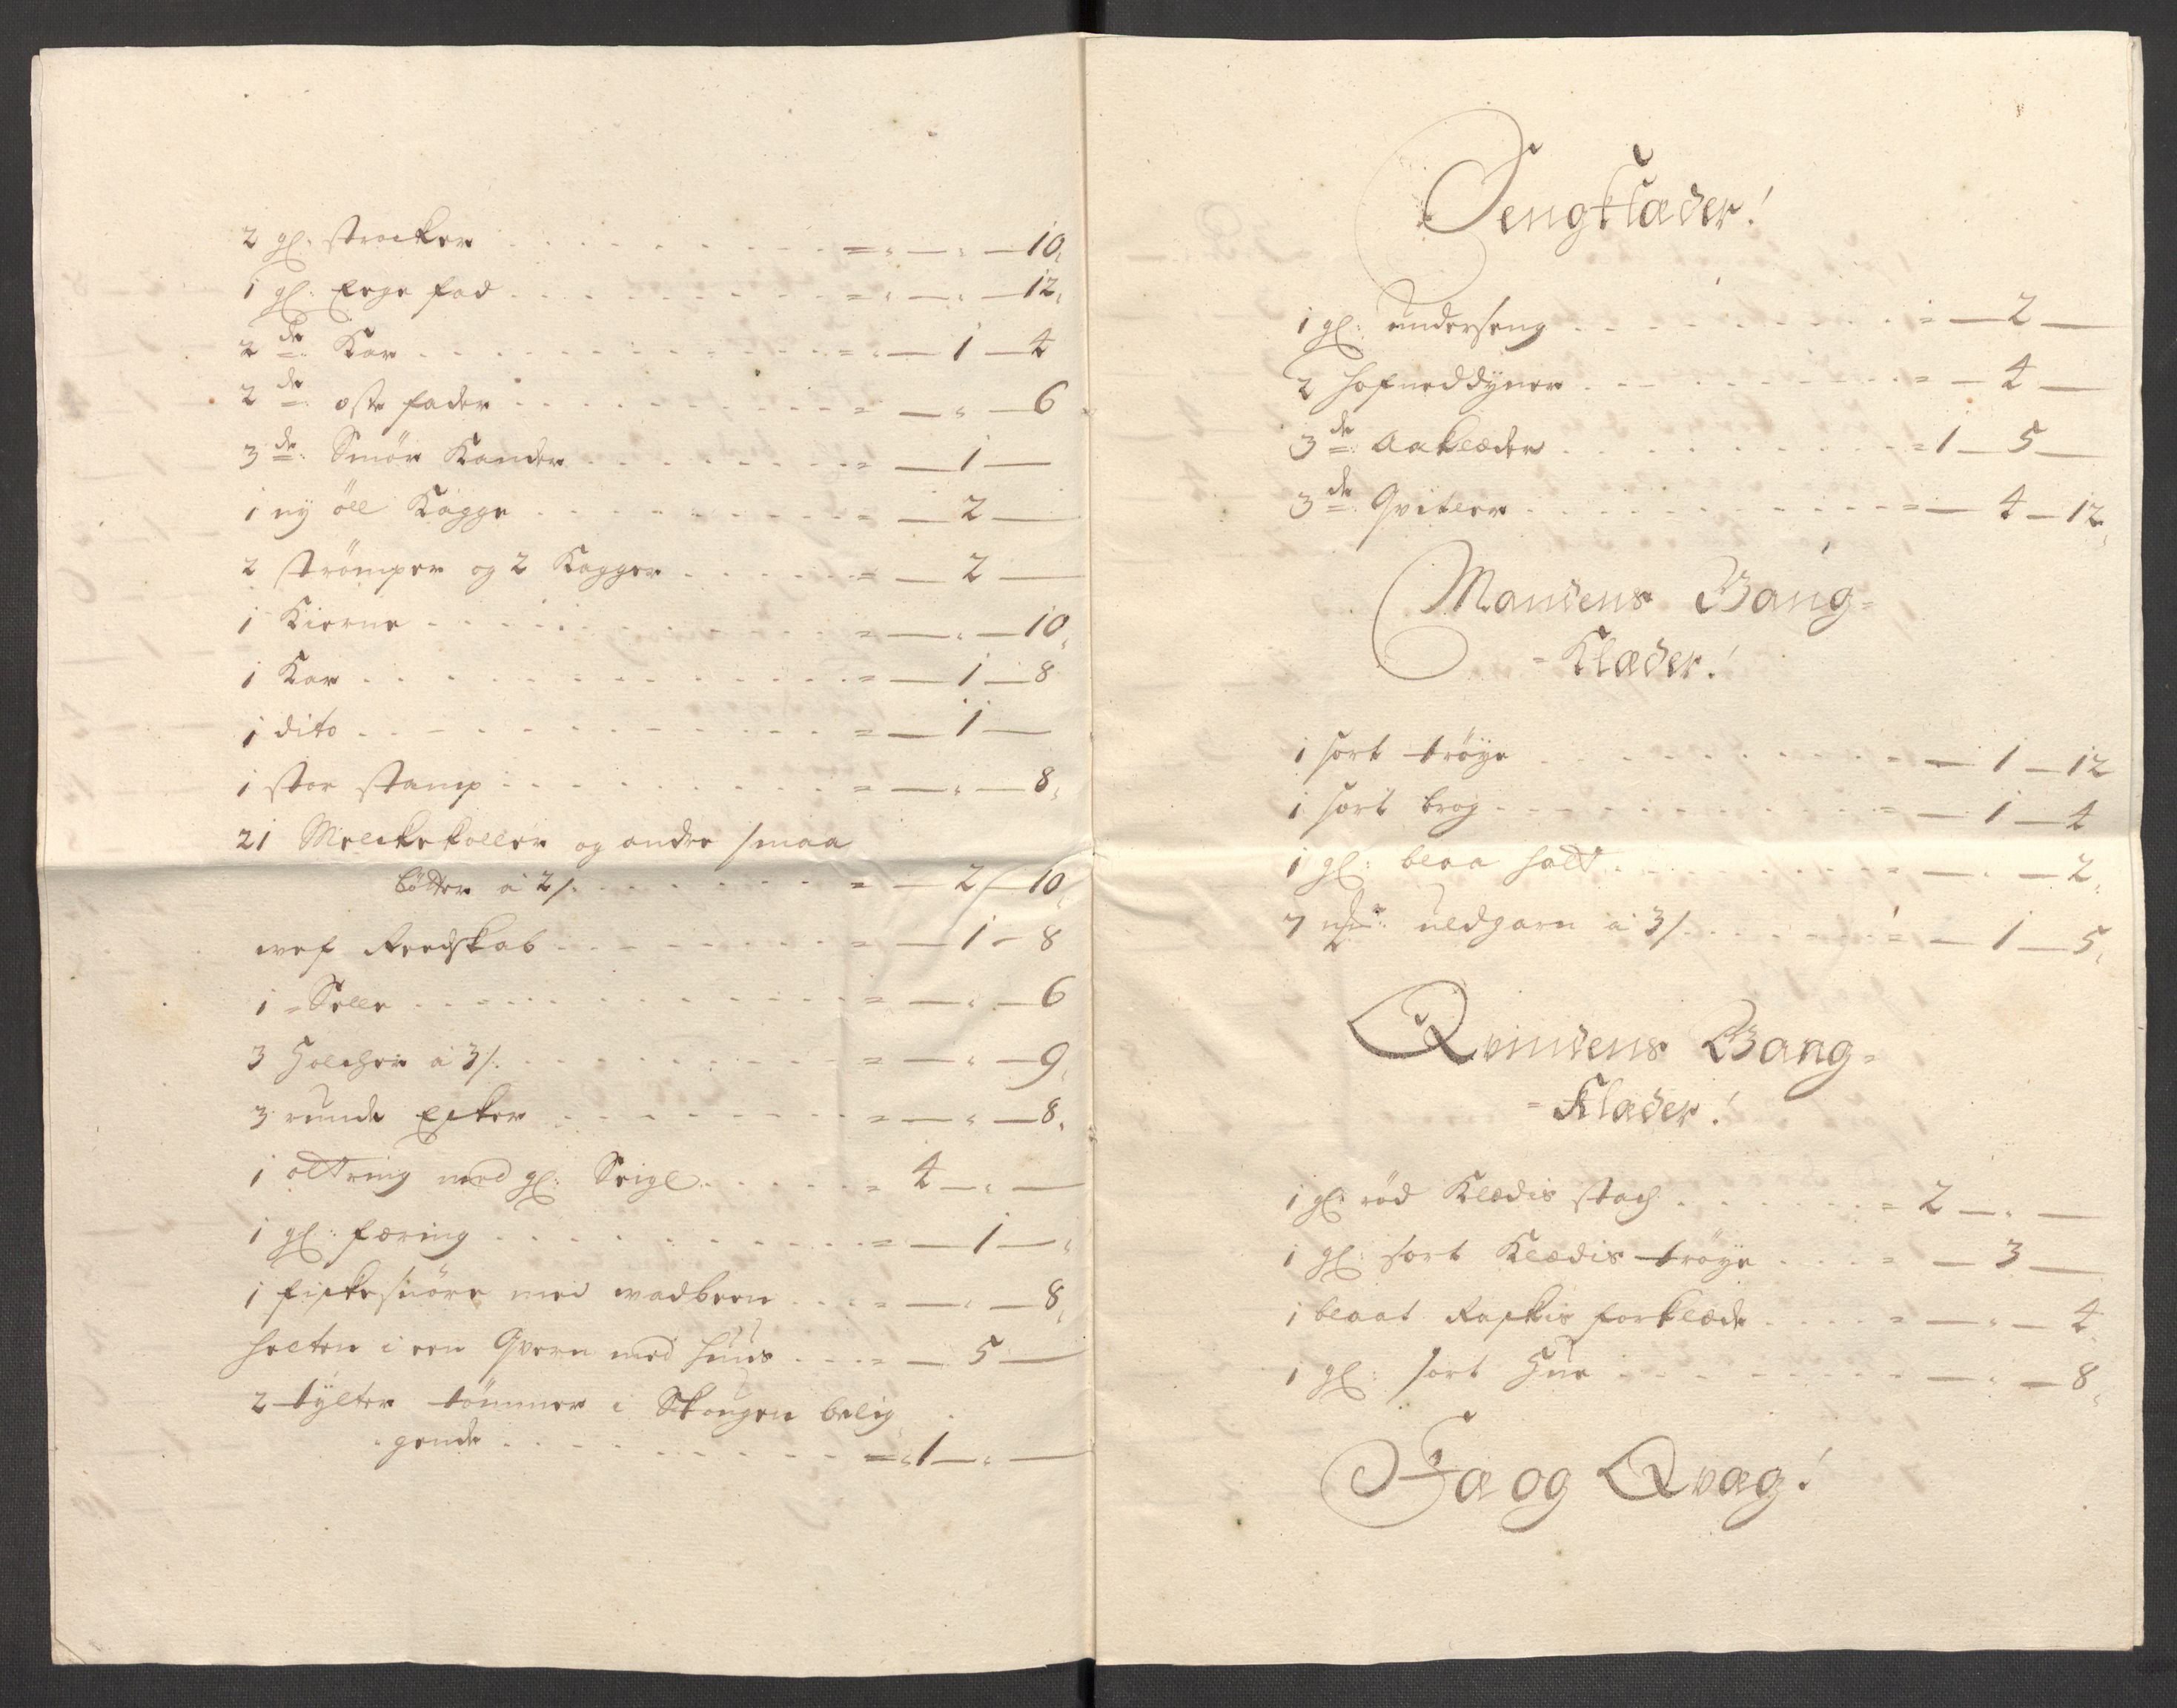 2 gl: strocker . . . . = " — " — 10,
1 gl: Erge fad . . . . = " — " — 12,
2 de: Kar . . . . = " — 1 — 4
2 de: oste fader . . . . = — " — 6
3 de: Smör Kander . . . . = — 1 —
1 ny öll Kagge . . . . = — 2 —
2 strömper og 2 Kagger . . . . = — 2 —
1 Kierne . . . . = — " — 10,
1 Kar . . . . = — 1 — 8
1 dito . . . . = — 1 —
1 stor stamp . . . . = — " — 8,
21 Melckekoller og andre smaa
bötter a 2 s. . . . . = — 2 — 10,
wef Reedskab . . . . = — 1 — 8
1 Selle . . . . = — " — 6
3 Holcher a 3 s. . . . . = — " — 9,
3 runde Esker . . . . = — " — 8,
1 ottring med gl: Seigl . . . . = 4 — " —
1 gl: færing . . . . = — 1 — "
1 fiskesnöre med wadbeen . . . = — " — 8,
helten i een Qvern med huus . . . = — 5 —
2 tylter tömmer i Skougen belig
gende . . . . = " 1 — " —
Sengklæder!
1 gl: underseng . . . . = — 2 —
2 hofueddyner . . . . = — 4 —
3 de: Aaklæder . . . . = 1 — 5 —
3 de: Qvitler . . . . = — 4 — 12,
Mandens Gang=
=Klæder!
1 sort tröye . . . . = — 1 — 12
1 sort brog . . . . = — 1 — 4
1 gl: blaa hatt . . . . = — " — 2,
7 uldgarn a 3 s. . . . . = — 1 — 5,
Qvindens Gang=
=Klæder!
1 gl: röd Klædis stach . . . . = 2 — " —
1 gl: sort Klædis tröye . . . . = — 3 —
1 blaat Raskis forklæde . . . . = — " — 4,
1 gl: sort Hue . . . . — " — 8,
Fæ og Qvæg!